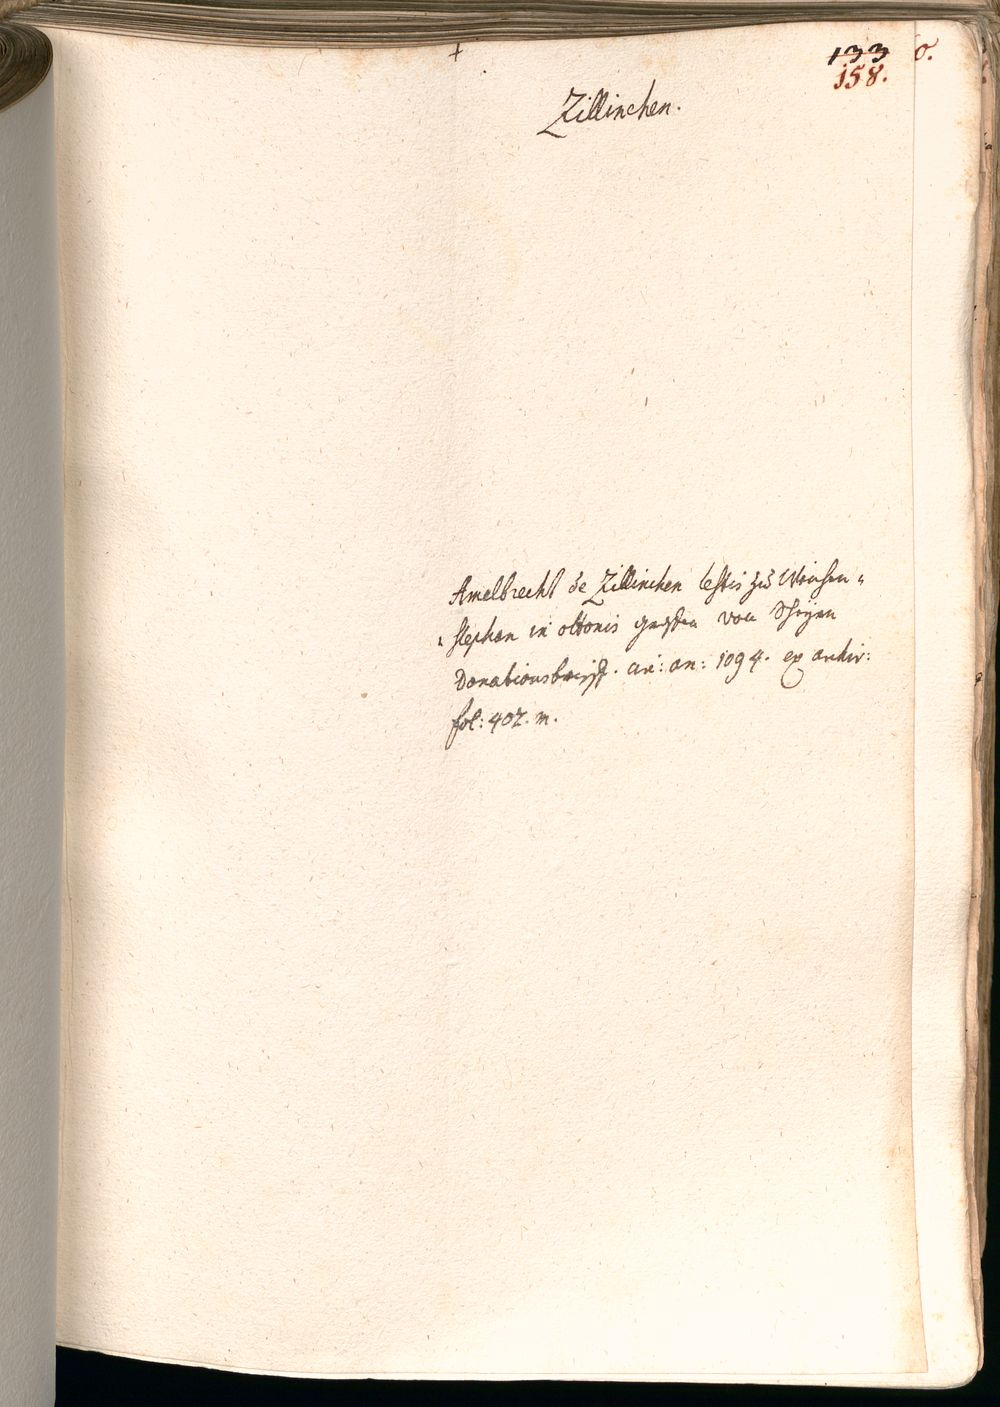 133
158.
Zillinchen.
Amelbrecht de Zillinchen testis zu Weichen „
„ stephan in ottonis graffen von Scheyrn
Donationsbrieff. ai: an: 1094. ex archiv:
fol: 402. m.